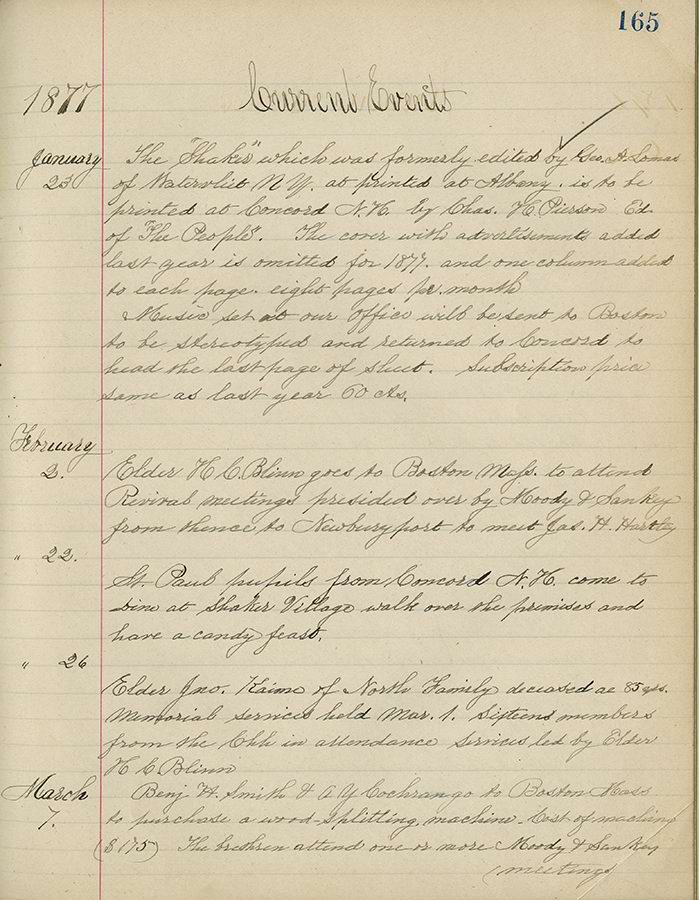 165
1877 Current Events
January The "Shaker" which was formerly edited by Geo. A. Lomas
23 of Watervliet N Y. at printed at Albany. is to be
printed at Concord N. H. by Chas. H. Pierson Ed.
of "The People". The cover with advertisements added
last year is omitted for 1877. and one column added
to each page. eight pages pr. month
Music set at our Office will be sent to Boston
to be stereotyped and returned to Concord to
head the last page of sheet. Subscription price
same as last year 60 cts.
February
2. Elder H C. Blinn goes to Boston Mass. to attend
Revival meetings presided over by Moody & Sankey
from thence to Newburyport to meet Jas. H. Hartley
" 22.
St. Paul pupils from Concord N. H. come to
Dine at Shaker Village walk over the premises and
have a candy feast.
" 26
Elder Jno. Kaime of North Family deceased ae 85 yrs.
Memorial services held Mar. 1. Sixteen members
from the Chh in attendance Services led by Elder
H C Blinn
March Benj H. Smith & A Y Cochran go to Boston Mass
7. to purchase a wood-splitting machine. Cost of machine
($175) The brethren attend one or more Moody & Sankey
meetings